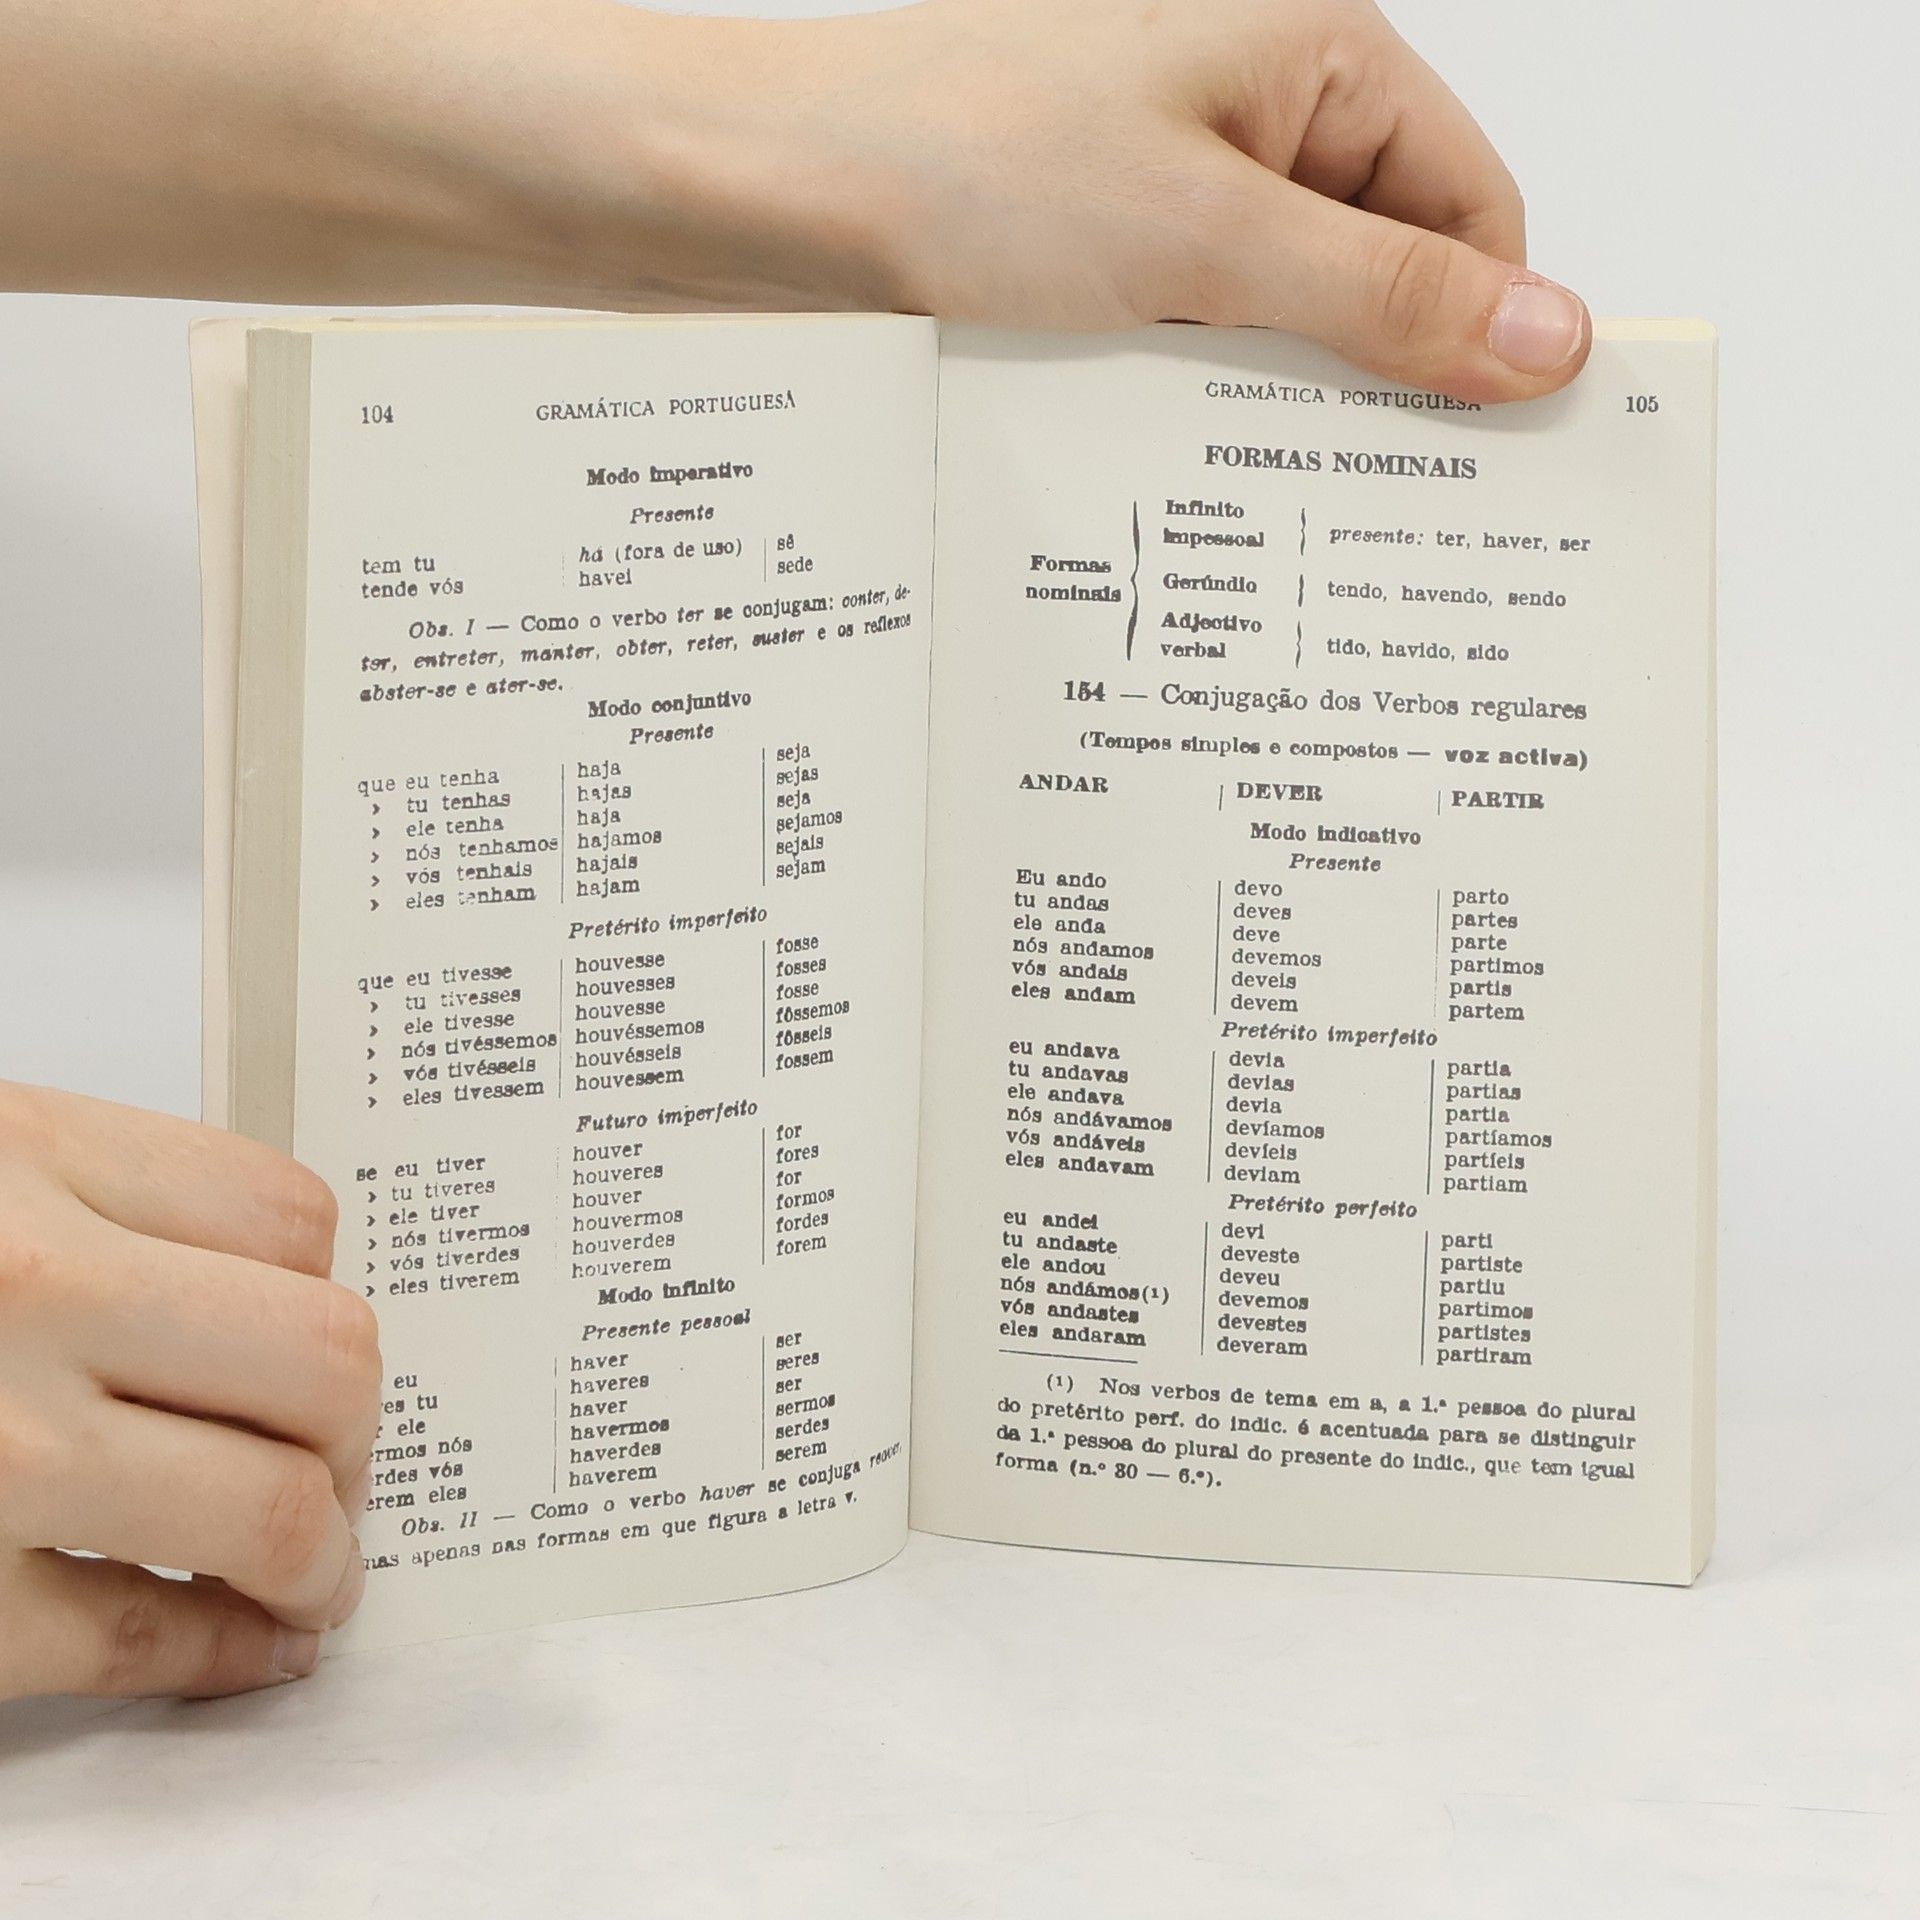 104 GRAMÁTICA PORTUGUESA
Modo imperativo
Presente
tem tu há (fora de uso) sê
tende vós havei sede
Obs. I — Como o verbo ter se conjugam: conter, de-
ter, entreter, manter, obter, reter, suster e os reflexos
abster-se e ater-se.
Modo conjuntivo
Presente
que eu tenha haja seja
› tu tenhas hajas sejas
› ele tenha haja seja
› nós tenhamos hajamos sejamos
› vós tenhais hajais sejais
› eles tenham hajam sejam
Pretérito imperfeito
que eu tivesse houvesse fosse
› tu tivesses houvesses fosses
› ele tivesse houvesse fosse
› nós tivéssemos houvéssemos fôssemos
› vós tivésseis houvésseis fôsseis
› eles tivessem houvessem fossem
Futuro imperfeito
se eu tiver houver for
› tu tiveres houveres fores
› ele tiver houver for
› nós tivermos houvermos formos
› vós tiverdes houverdes fordes
› eles tiverem houverem forem
Modo infinito
Presente pessoal
eu haver ser
tu haveres seres
ele haver ser
nós havermos sermos
vós haverdes serdes
eles haverem serem
Obs. II — Como o verbo haver se conjuga reaver,
mas apenas nas formas em que figura a letra v.
GRAMÁTICA PORTUGUESA 105
FORMAS NOMINAIS
Formas nominais
Infinito impessoal presente: ter, haver, ser
Gerúndio tendo, havendo, sendo
Adjectivo verbal tido, havido, sido
154 — Conjugação dos Verbos regulares
(Tempos simples e compostos — voz activa)
ANDAR DEVER PARTIR
Modo indicativo
Presente
Eu ando devo parto
tu andas deves partes
ele anda deve parte
nós andamos devemos partimos
vós andais deveis partis
eles andam devem partem
Pretérito imperfeito
eu andava devia partia
tu andavas devias partias
ele andava devia partia
nós andávamos devíamos partíamos
vós andáveis devíeis partíeis
eles andavam deviam partiam
Pretérito perfeito
eu andei devi parti
tu andaste deveste partiste
ele andou deveu partiu
nós andámos(¹) devemos partimos
vós andastes devestes partistes
eles andaram deveram partiram
(¹) Nos verbos de tema em a, a 1.ª pessoa do plural
do pretérito perf. do indic. é acentuada para se distinguir
da 1.ª pessoa do plural do presente do indic., que tem igual
forma (n.º 80 — 6.º).